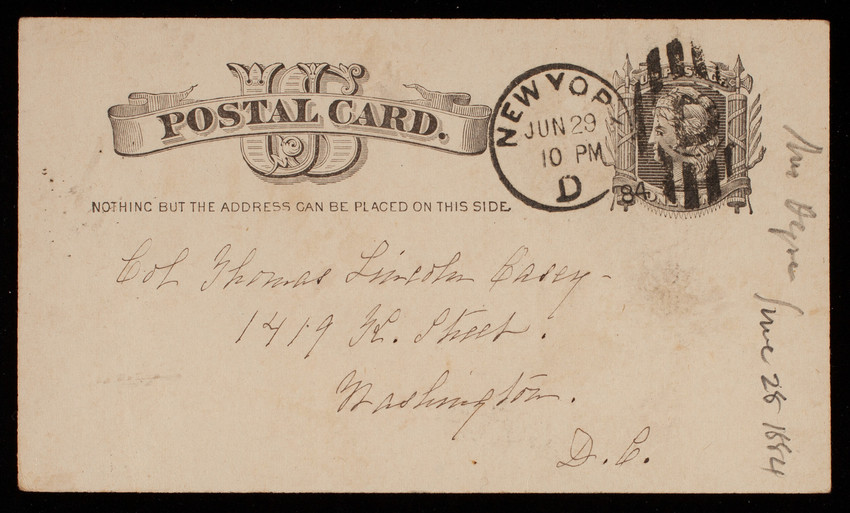 US
POSTAL CARD.
NOTHING BUT THE ADDRESS CAN BE PLACED ON THIS SIDE.
NEW YORK
JUN 29
10 PM
D
84
Col Thomas Lincoln Casey -
1419 K. Street.
Washington.
D. C.
Mrs
June 28 1884